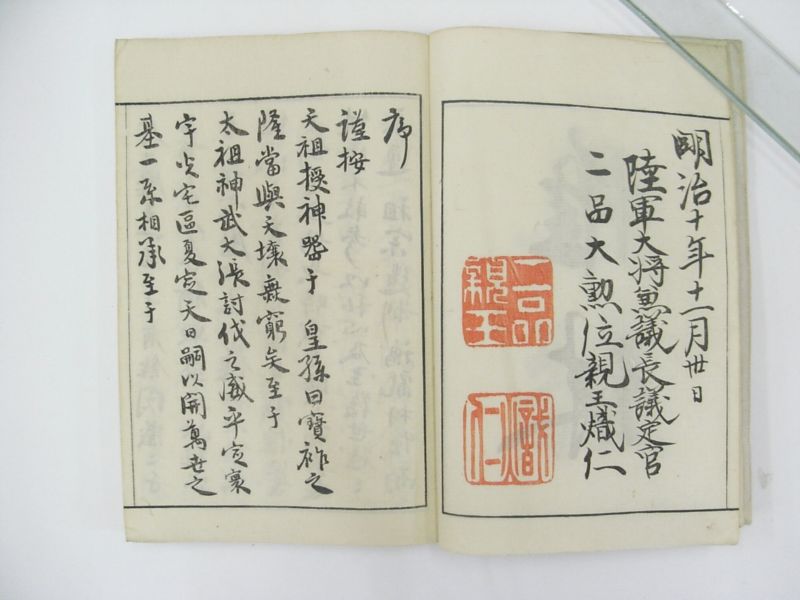 明治十年十一月卅日
陸軍大将兼議長議定官
二品大勲位親王熾仁
二品親王
熾仁
序
謹按
天祖授神器于 皇孫曰寶祚之
隆當與天壤無窮矣至于
太祖神武大張討伐之威平定寰
宇光宅區夏定天日嗣以開萬世之
基一系相承至于